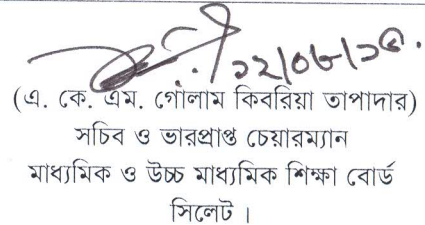 ১২/০৮/১৫.
(এ. কে. এম. গোলাম কিবরিয়া তাপাদার)
সচিব ও ভারপ্রাপ্ত চেয়ারম্যান
মাধ্যমিক ও উচ্চ মাধ্যমিক শিক্ষা বোর্ড
সিলেট ।